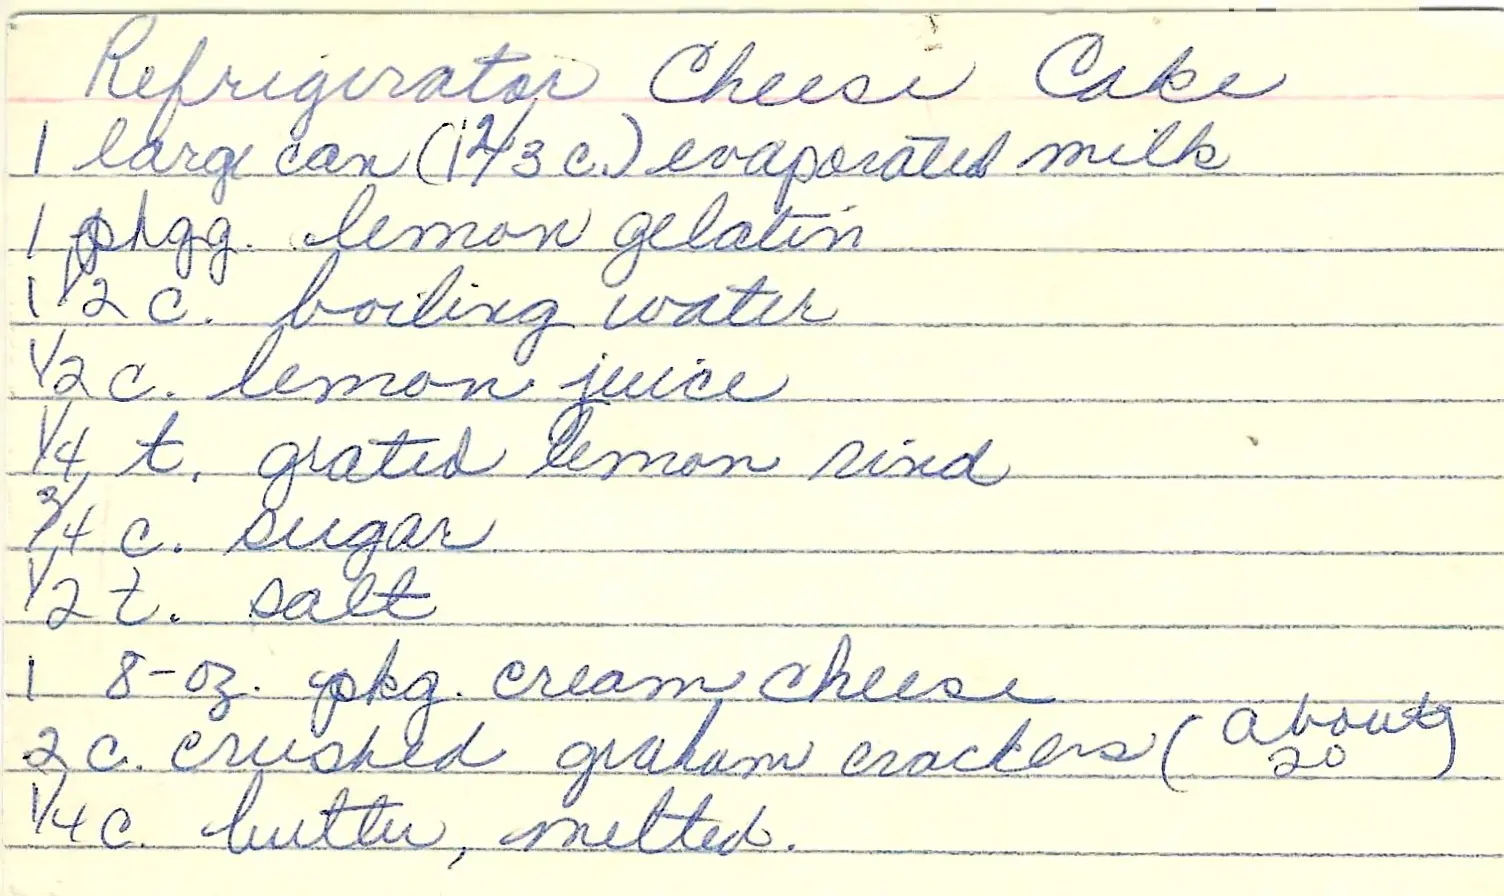 Refrigerator Cheese Cake
1 large can (1 2/3 c.) evaporated milk
1 pkgg. lemon gelatin
1 1/2 c. boiling water
1/2 c. lemon juice
1/4 t. grated lemon rind
3/4 c. sugar
1/2 t. salt
1 8-oz. pkg. cream cheese
2 c. crushed graham crackers (about 20)
1/4 c. butter, melted.